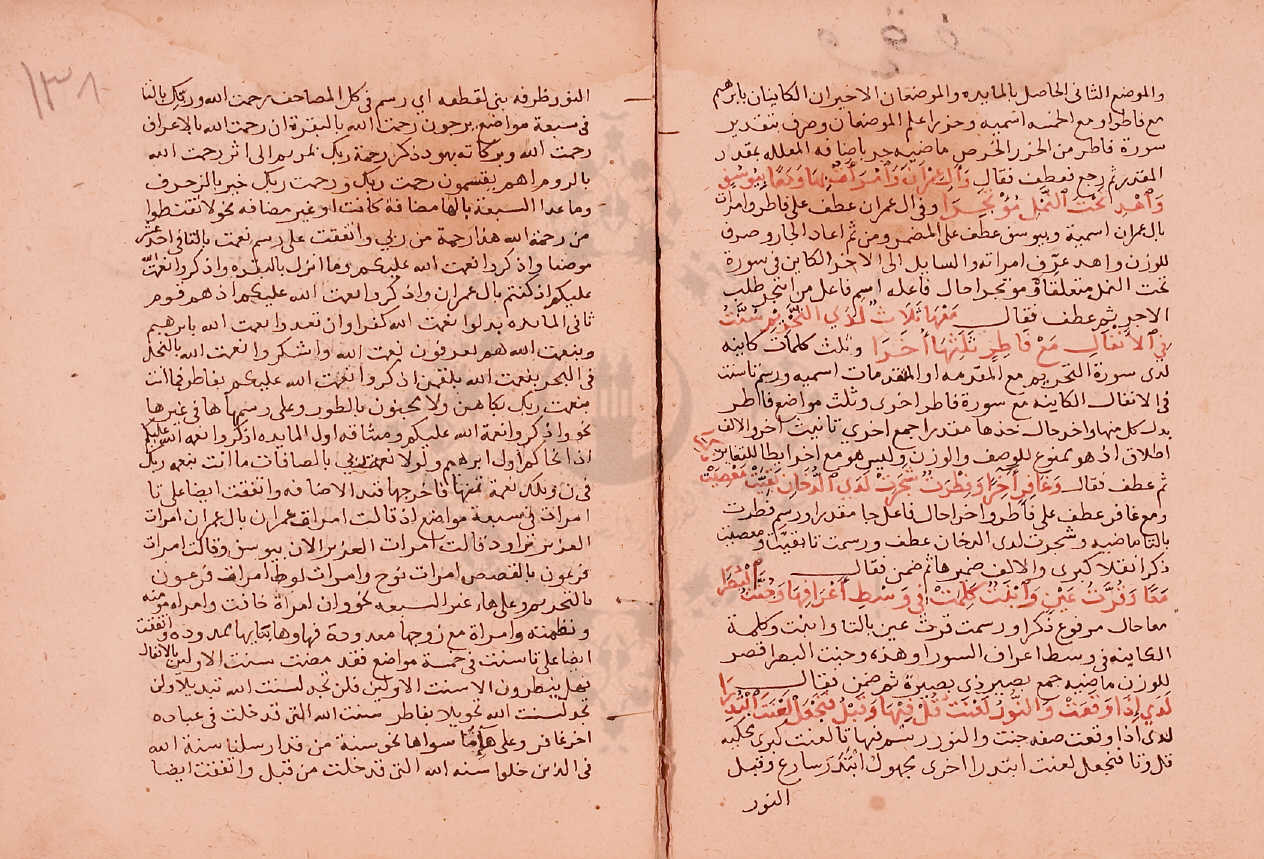 وقف
والموضع الثاني الحاصل بالمايده والموضعان الاخيران الكاينان بابرهيم
مع فاطر او مع الخمسه اسميه وحزرا علم الموضعان وصرف بتقدير
سورة فاطر من الحزر الخرص ماضيه جر باضافه المعلله بمقدار
المقدر ثم رجع فعطف فقال وآل عمران وامرأت بها ومعا بيوسف
واهد تحت النمل مؤتجرا وفي ال عمران عطف على فاطر وامرات
بال عمران اسمية وبيوسف عطف على المضمر ومن ثم اعاد الجار وصرف
للوزن واهد عرّف امراته والسايل الى الاخر الكاين في سورة
تحت النمل متعلقا ومؤتجرا حال فاعله اسم فاعل من ائتجر طلب
الاجر ثم عطف فقال معها ثلاث لدى التحريم سنت
في الانفال مع فاطر ثلثها اخرا وثلث كلمات كاينه
لدى سورة التحريم مع المقدمه او المقدمات اسميه ورسم تا سنت
في الانفال الكاينه مع سورة فاطر اخرى وثلث مواضع فاطر
بدل كل منها واخر حال خذها مقدرا جمع اخرى تانيث آخر والالف
اطلاق اذ هو ممنوع للوصف والوزن وليس هو مع اخر ابطا للتغاير
ثم عطف فقال وغافر آخرا وفطرت شجرت لدى الدخان بقيت معصيت
ومع غافر عطف على فاطر واخرا حال فاعل جا مقدرا ورسم فطرت
بالتا ماضيه وشجرت لدى الدخان عطف ورسمت تا بقيت ومعصيت
ذكرا نقلا كبرى والالف ضمير هاثم ضمن فقال
معا وقرت عين وابنت كلمت في وسط اعرافها وجنت البصرا
معا حال مرفوع ذكرا ورسمت قرت عين بالتا وابنت وكلمة
الكاينه في وسط اعراف السور او هذه وجنت البصرا قصر
للوزن ماضيه جمع بصير ذي بصيرة ثم ضمن فقال
لدى اذا وقعت والنور لعنت قل فيها وقبل فنجعل لعنت ابتدرا
لدى اذا وقعت صفه جنت والنور رسم فيها تا لعنت كبرى محكيه
قل وتا فنجعل لعنت ابتدرا اخرى مجهول ابتدر سارع وقبل
النور
١٣٨
النور ظرفه بنى لقطعه اي رسم في كل المصاحف رحمت الله وربك بالتا
في سبعة مواضع يرجون رحمت الله بالبقرة ان رحمت الله بالاعراف
رحمت الله وبركاته بهود ذكر رحمة ربك بمريم الى اثر رحمت الله
بالروم اهم يقسمون رحمت ربك ورحمت ربك خير بالزخرف
وما عدا السبعة بالها مضافة كانت او غير مضافه نحو لا تقنطوا
من رحمة الله هذا رحمة من ربي واتفقت على رسم نعمت بالتا في احد عشر
موضعا واذكروا نعمت الله عليكم وما انزل بالبقره واذكروا نعمت الله
عليكم اذ كنتم بال عمران واذكروا نعمت الله عليكم اذ هم قوم
ثاني المايده بدلوا نعمت الله كفرا وان تعدوا نعمت الله بابرهيم
وبنعمت الله هم يعرفون نعمت الله واشكروا نعمت الله بالنحل
في البحر بنعمت الله بلقمن اذكروا نعمت الله عليكم بفاطر فما انت
بنعمت ربك بكاهن ولا مجنون بالطور وعلى رسمها ها في غيرها
نحو واذكروا نعمة الله عليكم وميثاقه اول المايده اذكروا نعمه الله عليكم
اذ انجاكم اول ابرهيم ولولا نعمت ربي بالصافات ما انت بنعمه ربك
في ن وتلك نعمة تمنها فاخرجها قيد الاضافه واتفقت ايضا على تا
امرات في سبعة مواضع اذ قالت امرات عمران بال عمران امرات
العزيز تراود قالت امرات العزيز الان بيوسف وقالت امرات
فرعون بالقصص امرات نوح وامرات لوط امرات فرعون
بالتحريم وعلى هاء غير السبعه نحو وان امراة خافت وامراه مومنه
ونظمته وامراة مع زوجها معدودة فهاوها بتايها محدوده واتفقت
ايضا على تا سنت في خمسة مواضع فقد مضت سنت الاولين بالانفال
فهل ينظرون الا سنت الاولين فلن تجد لسنت الله تبديلا ولن
تجد لسنت الله تحويلا بفاطر سنت الله التي قد خلت في عباده
اخر غافر وعلى هآء ما سواها نحو سنة من قد ارسلنا سنة الله
في الذين خلوا سنه الله التي قد خلت من قبل واتفقت ايضا